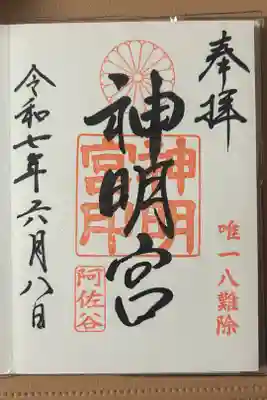 奉拝
唯一八難除
神明宮
神明宮
阿佐谷
令和七年六月八日